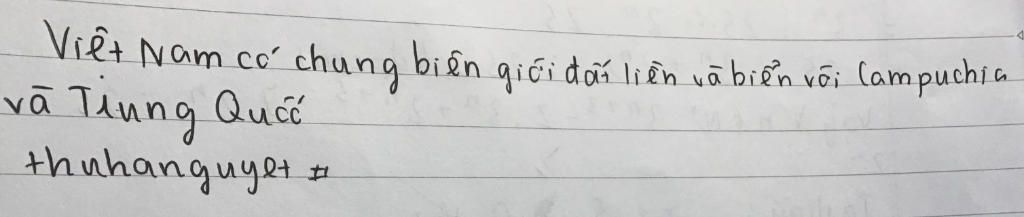 Việt Nam có chung biên giới đất liền và biển với Campuchia
và Trung Quốc
thuhanguyet #